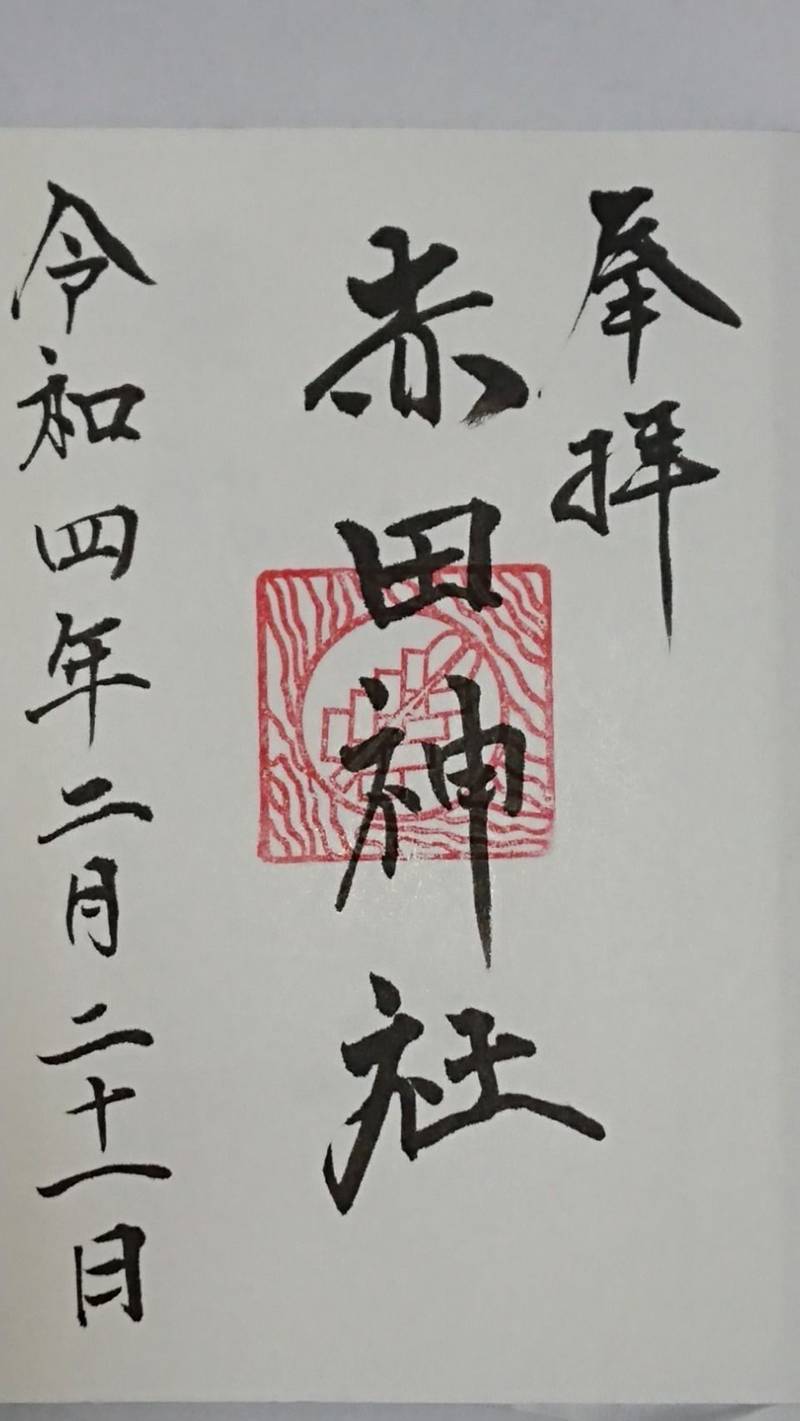 奉拝
赤田神社
令和四年二月二十一日